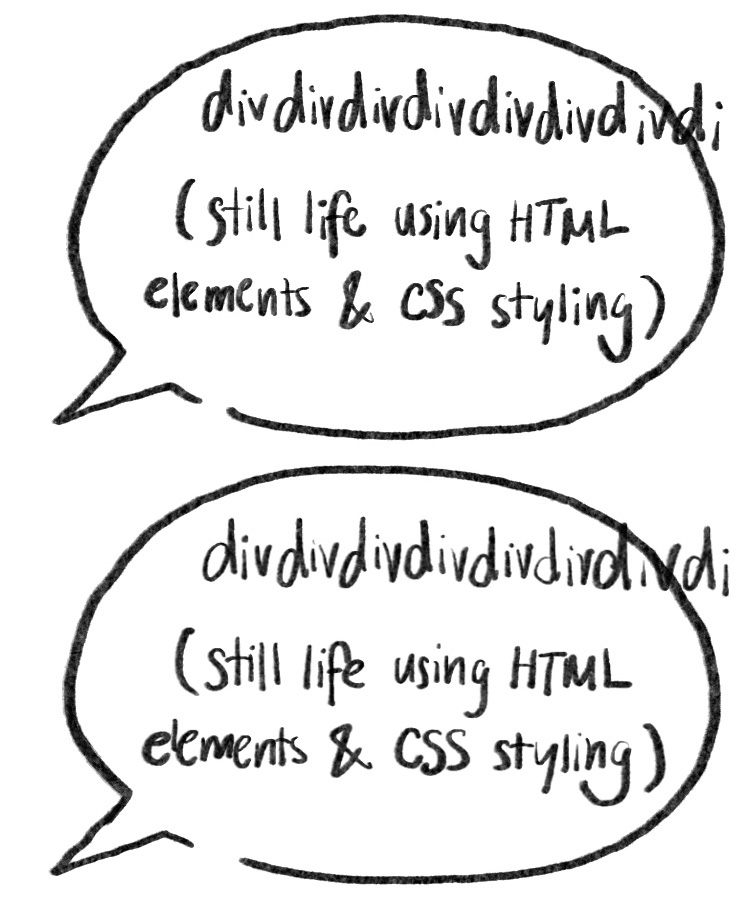 divdivdivdivdivdivdivdi
(still life using HTML
elements & CSS styling)
divdivdivdivdivdivdivdi
(still life using HTML
elements & CSS styling)